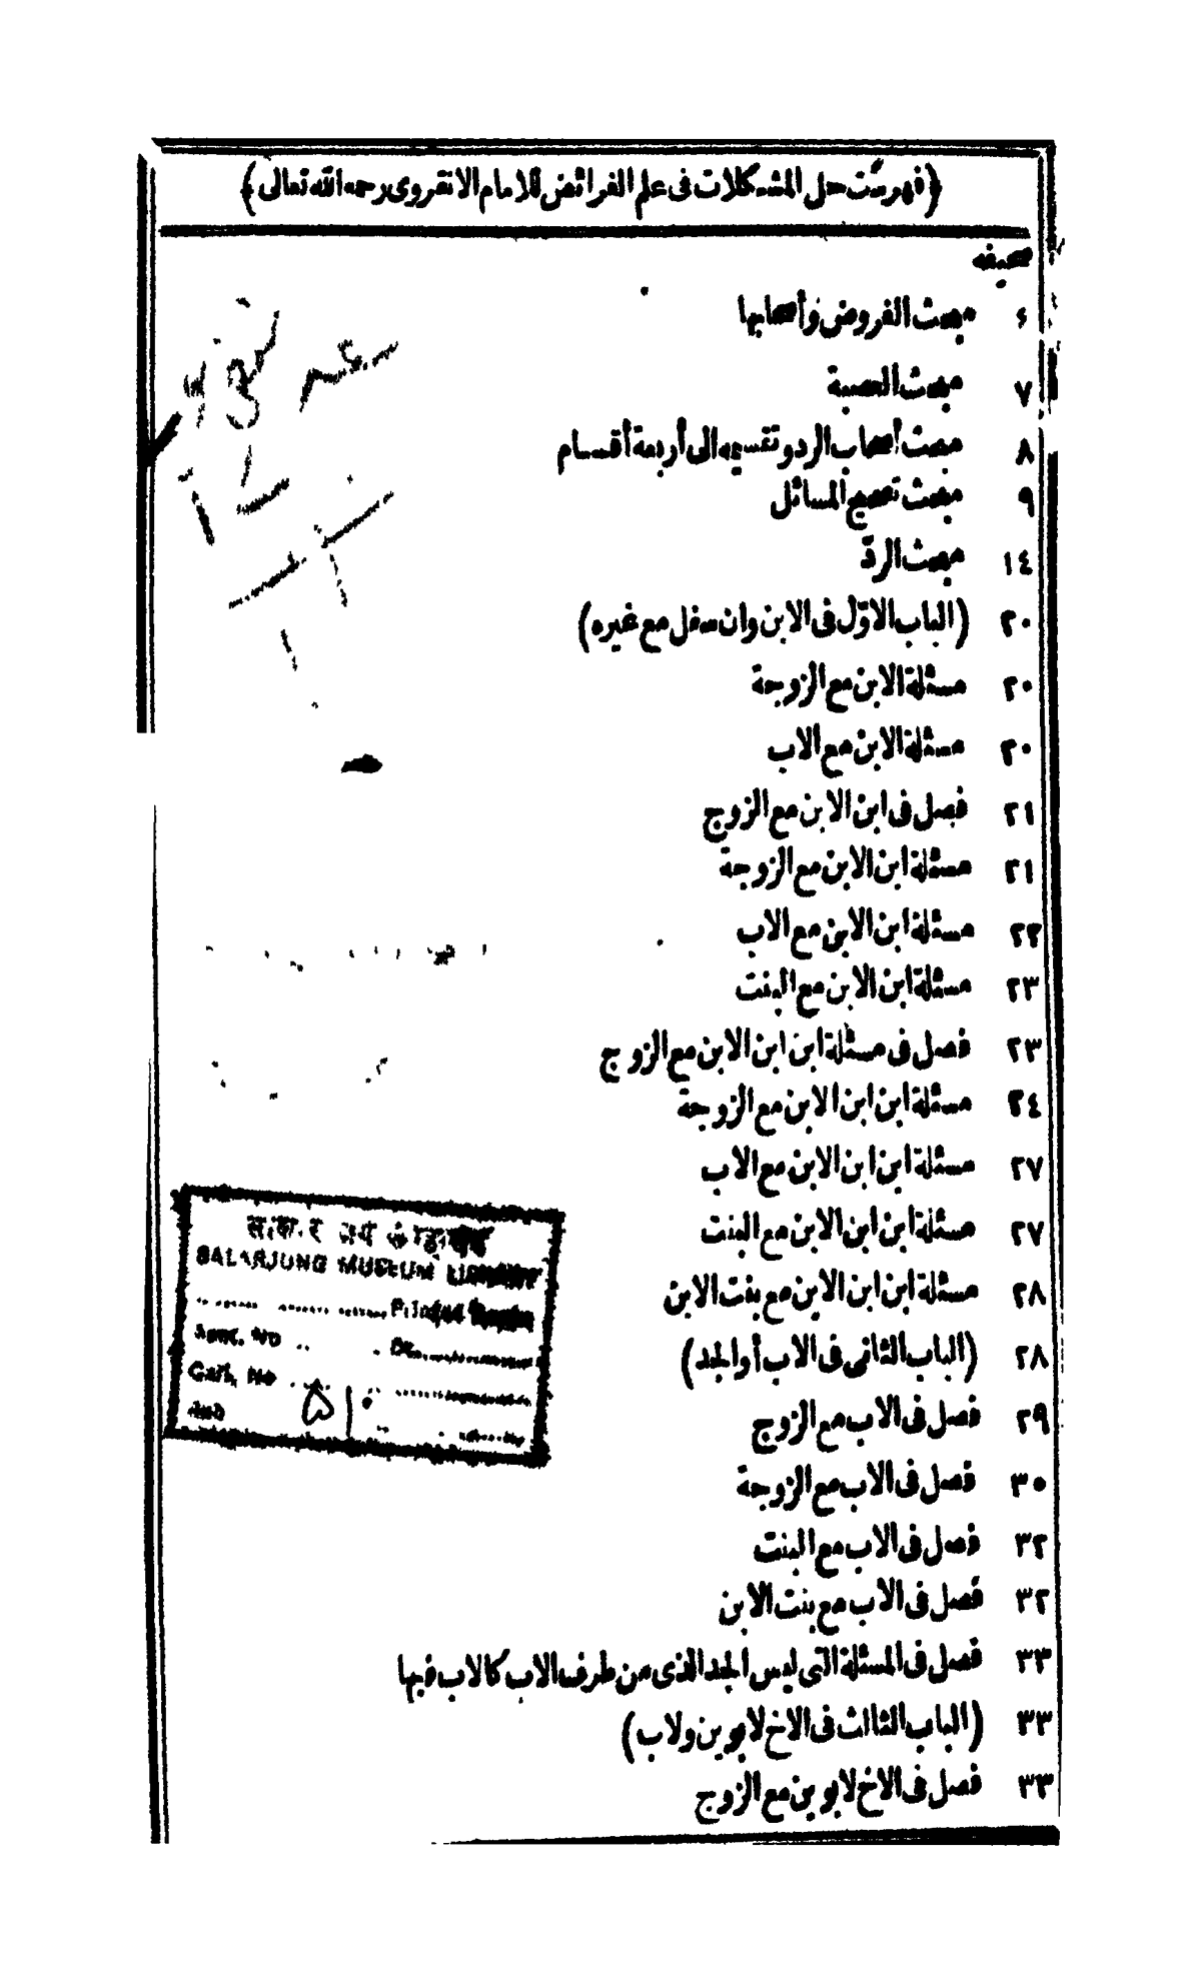 ﴿فهرست حل المشكلات فى علم الفرائض للامام الانقروى رحمه الله تعالى﴾
صحيفه
٤ مبحث الفروض وأصحابها
٧ مبحث العصبة
٨ مبحث أصحاب الرد وتقسيمه الى أربعة أقسام
٩ مبحث تصحيح المسائل
١٤ مبحث الردّ
٢٠ (الباب الاوّل فى الابن وان سفل مع غيره)
٢٠ مسئلة الابن مع الزوجة
٢٠ مسئلة الابن مع الاب
٢١ فصل فى ابن الابن مع الزوج
٢١ مسئلة ابن الابن مع الزوجة
٢٢ مسئلة ابن الابن مع الاب
٢٣ مسئلة ابن الابن مع البنت
٢٣ فصل فى مسئلة ابن ابن الابن مع الزوج
٢٤ مسئلة ابن ابن الابن مع الزوجة
٢٧ مسئلة ابن ابن الابن مع الاب
٢٧ مسئلة ابن ابن الابن مع البنت
٢٨ مسئلة ابن ابن الابن مع بنت الابن
٢٨ (الباب الثانى فى الاب أو الجد)
٢٩ فصل فى الاب مع الزوج
٣٠ فصل فى الاب مع الزوجة
٣٢ فصل فى الاب مع البنت
٣٢ فصل فى الاب مع بنت الابن
٣٣ فصل فى المسئلة التى ليس الجد الذى من طرف الاب كالاب فيها
٣٣ (الباب الثالث فى الاخ لابوين ولاب)
٣٣ فصل فى الاخ لابوين مع الزوج
SALARJUNG MUSEUM LIBRARY
Printed Books
Acc. No
Cat. No ٥١٠